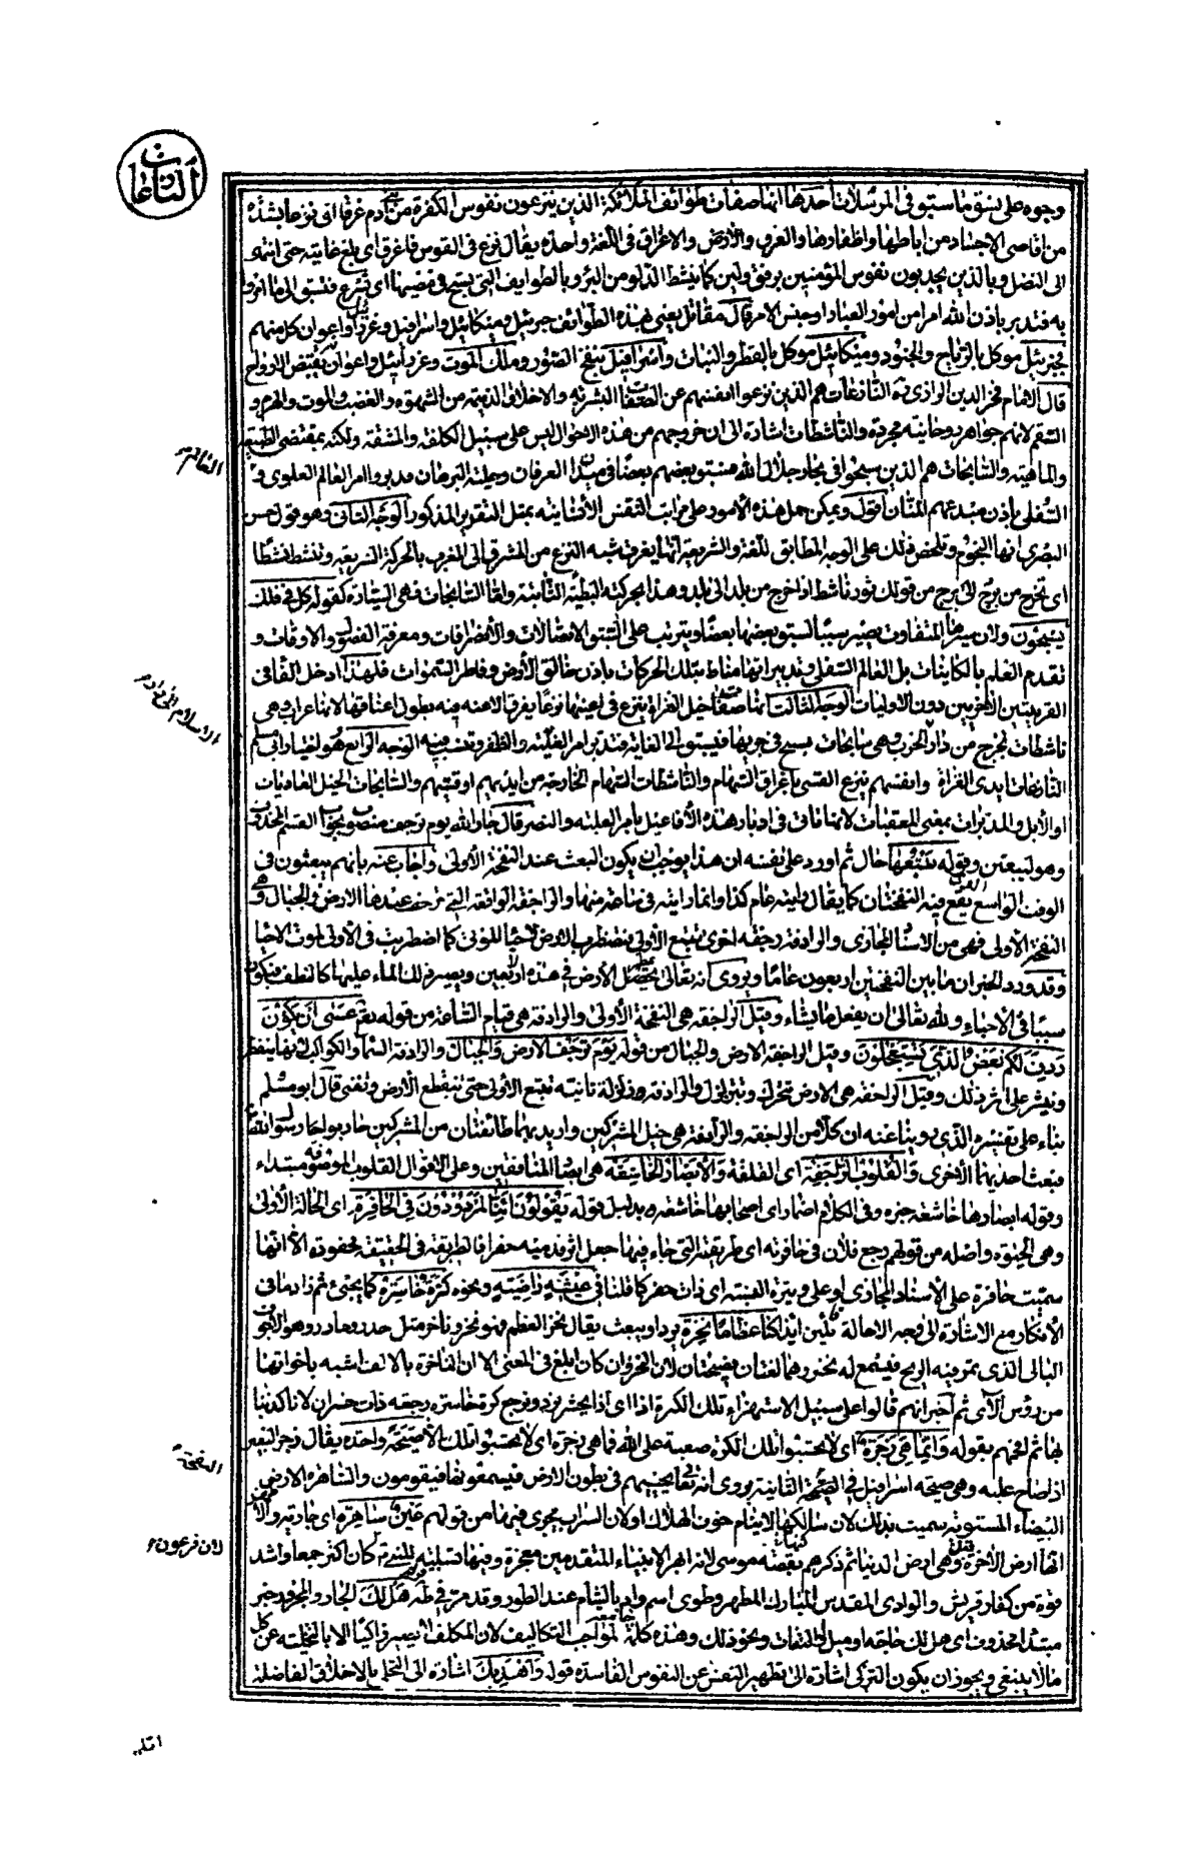 النازعات
وجوه على نسق ما سبق فى المرسلات احدها انها صفات طوائف الملائكة الذين ينزعون نفوس الكفرة من بنى آدم غرقا اى نزعا بشدة
من اقاصى الاجساد من اباطها واظفارها والغرق والاغراق فى اللغة واحدة يقال نزع فى القوس فاغرق اى بلغ غايته حتى انتهى
الى النصل وبالذين يجذبون نفوس المؤمنين برفق ولين كما ينشط الدلو من البئر وبالطوايف التى تسبح فى مضيها اى تسرع فتسبق الى ما امروا
به فتدبر باذن الله امرا من امور العباد او جنس الامر قال مقاتل يعنى بهذه الطوائف جبرئيل وميكائيل واسرافيل وعزرائيل واعوان كل منهم
فجبرئيل موكل بالرياح والجنود وميكائيل موكل بالقطر والنبات واسرافيل بنفخ الصور وملك الموت وعزرائيل واعوانه بقبض الارواح
قال الامام فخر الدين الرازى ره النازعات هم الذين نزعوا انفسهم عن الصفات البشرية والاخلاق الذميمة من الشهوة والغضب والموت والهرم و
السقم لانهم جواهر روحانية مجردة والناشطات اشارة الى ان خروجهم من هذه الاحوال ليس على سبيل الكلفة والمشقة ولكنه بمقتضى الطبيعة
والماهية والسابحات هم الذين سبحوا فى بحار جلال الله فسبق بعضهم بعضا فى ميدان العرفان وحلبة البرهان فدبروا امر العالم العلوى و
العالم
السفلى باذن مبدعهم المنان اقول ويمكن حمل هذه الأمور على مراتب النفس الانسانية بمثل التقرير المذكور الوجه الثانى وهو قول حسن
البصرى انها النجوم وتلخص ذلك على الوجه المطابق للغة والشريعة انها يغرق شبه النزع من المشرق الى المغرب بالحركة السريعة وتنشط نشطا
اى تخرج من برج الى برج من قولك ثور ناشط اذا خرج من بلد الى بلد وهذا بحركته البطيئة الثابتة واما السابحات فهى السيارة كقوله كل فى فلك
يسبحون ولان سيرها المتفاوت يصير سببا لسبق بعضها بعضا ويترتب على السبق الاتصالات والانصرافات ومعرفة الفصول والاوقات و
تقدم العلم بالكاينات بل العالم السفلى وتدبيراتها مناط بتلك الحركات باذن خالق الأرض وفاطر السموات فلهذا ادخل الفا فى
القرينتين الأخريين دون الاوليات الوجه الثالث انها صفات خيل الغزاة تنزع فى اعنتها نزعا يغرق الاعنة فيه بطول اعناقها لانها عراب وهى
ناشطات تخرج من دار الحرب وهى سابحات تسبح فى جريها فيسبق الى الغاية فتدبر امر الغلبة والظفر وتتسبب فيه الوجه الرابع هو اختيار ابى مسلم
الاسلام الى دار
النازعات ايدى الغزاة وانفسهم بنزع القسى باغراق السهام والناشطات السهام الخارجة من ايديهم او قسيهم والسابحات الخيل العاديات
او الأبل والمدبرات بمعنى المعقبات لانها تاتى فى ادبار هذه الأفاعيل بامر الغلبة والنصر قال جار الله يوم ترجف منصوب بجواب القسم المحذوف
وهو لتبعثن وقوله تتبعها حال ثم اورد على نفسه ان هذا يوجب ان يكون البعث عند النفخة الأولى واجاب عنه بانهم يبعثون فى
الوقت الواسع الذى يقع فيه النفختان كما يقال رايته عام كذا وانما رايته فى ساعة منها والراجفة الواقعة التى ترجف عندها الارض والجبال وهى
النفخة الأولى فهى من الاسناد المجازى والرادفة رجفة اخرى تتبع الأولى فتضطرب الارض لاحياء الموتى كما اضطربت فى الأولى لموت الاحياء
وقد ورد الخبر ان ما بين النفختين اربعون عاما ويروى انه تعالى يمطر الأرض فى هذه الاربعين ويصير ذلك الماء عليها كالنطف فيكون
سببا فى الاحياء ولله تعالى ان يفعل ما يشاء وقيل الراجفة هى النفخة الأولى والرادفة هى قيام الساعة من قوله تعالى عسى ان يكون
ردف لكم بعض الذى تستعجلون وقيل الراجفة الارض والجبال من قوله يوم ترجف الارض والجبال والرادفة السماء والكواكب لانها ينفطر
وينتثر على اثر ذلك وقيل الراجفة هى الارض تتحرك وتتزلزل والرادفة زلزلة ثانية تتبع الأولى حتى تنقطع الارض وتفنى قال ابو مسلم
بناء على تفسيره الذى روينا عنه ان كلا من الراجفة والرادفة هى خيل المشركين واريد بهما طائفتان من المشركين حاربوا رسول الله
فتبعث احديهما الأخرى والقلوب الراجفة اى القلقة والابصار الخاشعة هى ابصار المنافقين وعلى الاقوال القلوب الموصوفة مبتداء
وقوله ابصارها خاشعة خبره وفى الكلام اضمار اى اصحابها خاشعة بدليل قوله يقولون ائنا لمردودون فى الحافرة اى الحالة الأولى
وهى الحيوة واصله من قولهم رجع فلان فى حافرته اى طريقته التى جاء فيها جعل اثر قدميه حفرا فالطريقة فى الحقيقة محفورة الا انها
سميت حافرة على الاسناد المجازى او على وتيرة النسبة اى ذات حفر كما قلنا فى عيشة راضية ونحوه كرة خاسرة كما يجئ ثم زاد ما فى
الانكار مع الاشارة الى وجه الاحالة قائلين ائذا كنا عظاما نخرة نرد او نبعث يقال نخر العظم فهو نخر وناخر مثل حذر وحاذر وهو الاجوف
البالى الذى يمر فيه الريح فيسمع له نخير وهما لغتان فصيحتان لان النخر وان كان ابلغ فى المعنى الا ان الناخرة بالالف اشبه باخواتها
من رؤس الآى ثم اخبر انهم قالوا على سبيل الاستهزاء تلك الكرة اذا اى اذا نحشر ونرد ونرجع كرة خاسرة رجعة ذات خسران لانا كذبنا
بها ثم افحمهم بقوله فانما هى زجرة اى لا تحسبوا تلك الكرة صعبة على الله فما هى زجرة اى لا تحسبوا تلك الا صيحة واحدة يقال زجر البعير
النفخة
اذا صاح عليه وهى صيحة اسرافيل فى النفخة الثانية يروى انه تعالى يحييهم فى بطون الارض فيسمعونها فيقومون والساهرة الارض
البيضاء المستوية سميت بذلك لان سالكها لا ينام خوف الهلاك او لان السراب يجرى فيها من قولهم عين ساهرة اى جارية والاظهر
انها ارض الآخرة وقيل هى ارض الدنيا ثم ذكرهم بقصة موسى لانه ابهر الانبياء المتقدمين معجزة وفيها تسلية للنبى كان اكثر جمعا واشد
لان فرعون
قوة من كفار قريش والوادى المقدس المبارك المطهر وطوى اسم واد بالشام عند الطور وقد مر فى طه هل لك الجار والمجرور خبر
مبتدا محذوف اى هل لك حاجة او ميل او التفات ونحو ذلك وهذه كلمة جامعة لمواجب التكاليف لان المكلف لا يصير زاكيا الا بالتخلية عن كل
مالا ينبغى ويجوز ان يكون التزكى اشارة الى تطهير النفس عن النفوس الفاسدة قوله واهديك اشارة الى التحلى بالاخلاق الفاضلة